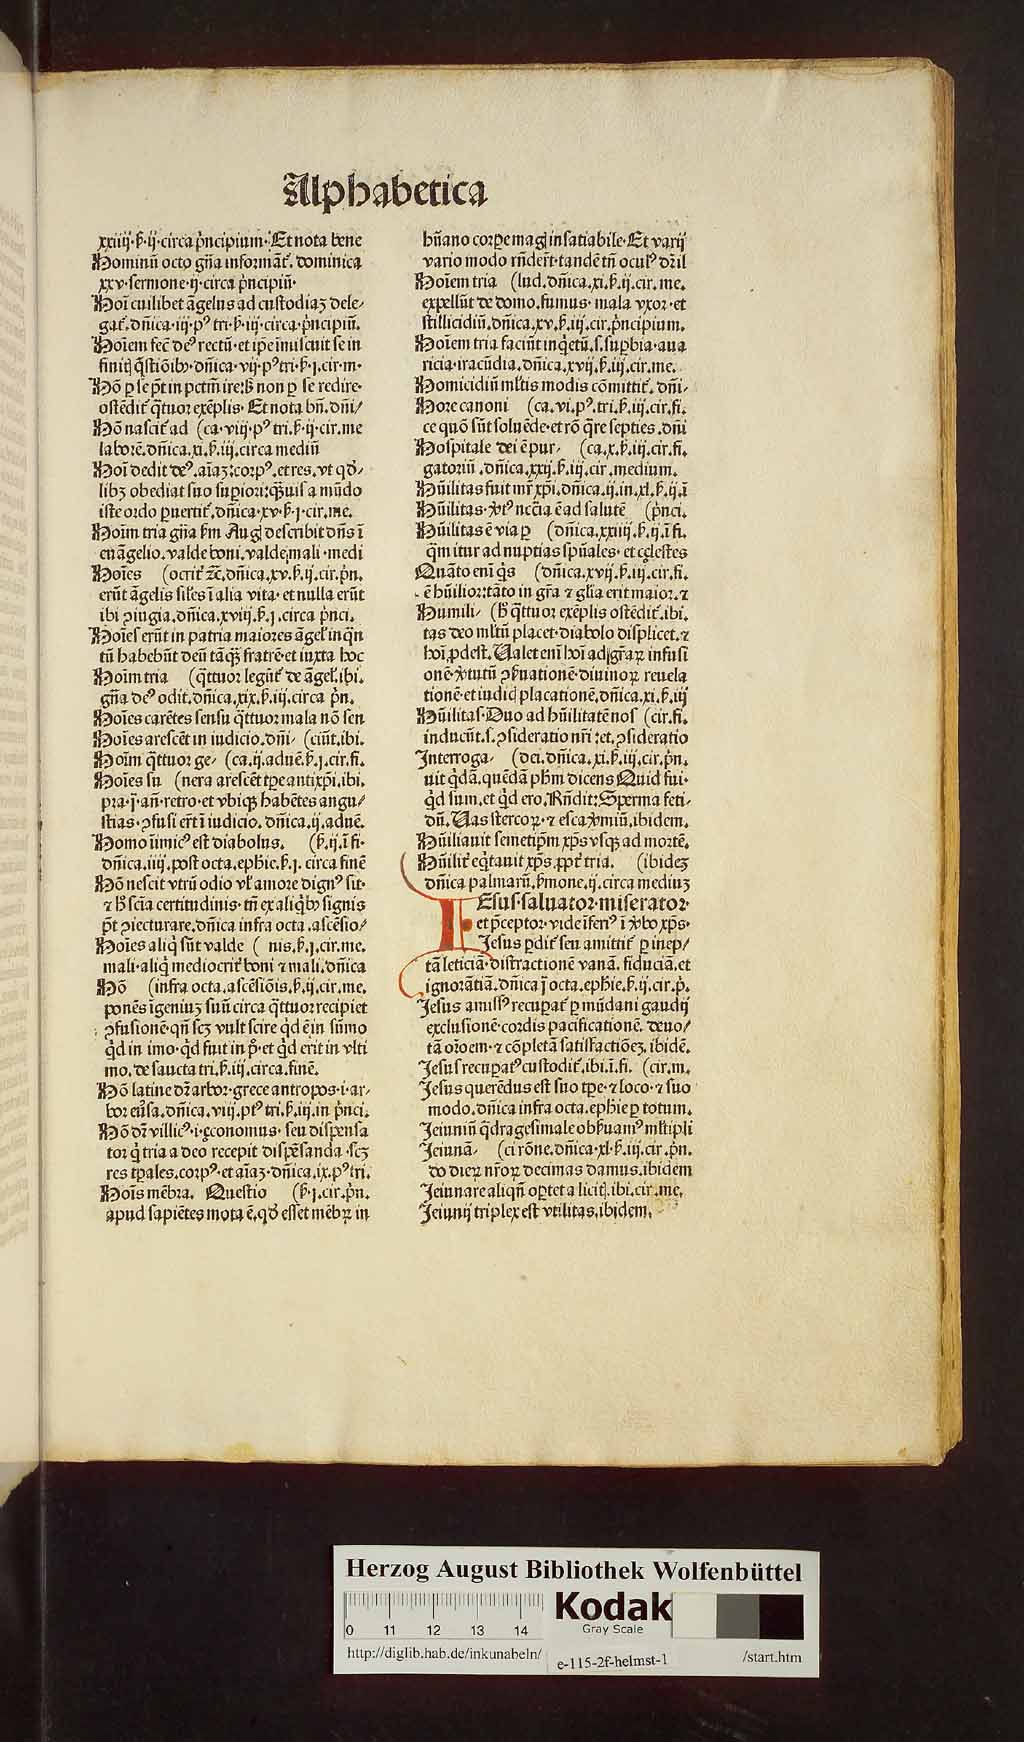 Alphabetica
xxiiij.ẜ.ij.circa p̄ncipium. Et nota bene
Hominū octo gn̄a informāt̄. dominica
xxv.sermone.ij.circa p̄ncipiū.
Hoī cuilibet āgelus ad custodiaꝫ dele⸗
gat̄. dn̄ica.iij.pꝰ tri.ẜ.iij.circa.p̄ncipiū.
Hoīem fecē deꝰ rectū.et ip̄e īmiscuit se in
finitꝭ q̄stiōibꝰ.dn̄ica.vij.pꝰtri.ẜ.j.cir.m.
Hō ꝑ se p̄t in pctm̄ ire:ꝫ non ꝑ se redire.
ostēdit̄ q̄tuor exēplis. Et nota bn̄.dn̄i⸗
Hō nascit̄ ad (ca.viij.pꝰ tri.ẜ.ij.cir.me
laborē.dn̄ica.xi.ẜ.iij.circa mediū
Hoī dedit deꝰ.aīaꝫ:corpꝰ.et res.vt qđ⸗
libꝫ obediat suo supiori:q̄uis a mūdo
iste ordo ꝑuertit̄.dn̄ica.xv.ẜ.j.cir.me.
Hoīm tria gn̄a ẜm Augꝭ describit dn̄s ī
euāgelio.valde boni.valde mali.medi
Hoīes (ocrit̄ ꝛc̄.dn̄ica.xv.ẜ.ij.cir.p̄n.
erūt āgelis sil̄es ī alia vita.et nulla erūt
ibi ꝯiugia.dn̄ica.xviij.ẜ.j.circa p̄nci.
Hoīes erūt in patria maiores āgel̄ in qn̄
tū habebūt deū tāqꝫ fratrē.et iuxta hoc
Hoīm tria (q̄ttuor legūt̄ de āgel̄.ibi.
gn̄a deꝰ odit.dn̄ica.xix.ẜ.iij.circa p̄n.
Hoīes carētes sensu q̄ttuor mala nō sen
Hoīes arescēt in iudicio.dn̄i⸗ (ciūt.ibi.
Hoīm q̄ttuor ge⸗ (ca.ij.aduē.ẜ.j.cir.fi.
Hoīes su (nera arescēt tꝑe antixp̄i.ibi.
pra.j.an̄.retro.et vbiqꝫ habētes angu⸗
stias.ꝯfusi er̄t ī iudicio.dn̄ica.ij.aduē.
Homo īimicꝰ est diabolus. (ẜ.ij.ī fi.
dn̄ica.iiij.post octa.ephie.ẜ.j.circa finē
Hō nescit vtrū odio vl̄ amore dignꝰ sit.
⁊ ꝫ scīa certitudinis.tn̄ ex aliq̄bꝰ signis
p̄t ꝯiecturare.dn̄ica infra octa.ascēsio⸗
Hoīes aliq̄ sūt valde (nis.ẜ.j.cir.me.
mali.aliq̄ mediocrit̄ boni ⁊ mali.dn̄ica
Hō (infra octa.ascēsiōis.ẜ.ij.cir.me.
ponēs īgeniuꝫ suū circa q̄ttuor recipiet
ꝯfusionē.qn̄ scꝫ vult scire qd̄ ē in sūmo
qd̄ in imo.qd̄ fuit in p̄.et qd̄ erit in vlti
mo.de sancta tri.ẜ.iij.circa.finē.
Hō latine dr̄ arbor.grece antropos.i.ar⸗
bor eūsa.dn̄ica.viij.ptꝰ tri.ẜ.iij.in p̄nci.
Hō dr̄ villicꝰ.i.yconomus.seu dispensa
tor q̄ tria a deo recepit dispēsanda.scꝫ
res tꝑales.corpꝰ.et aīaꝫ.dn̄ica.ix.pꝰ tri.
Hoīs mēbra. Questio (ẜ.j.cir.p̄n.
apud sapiētes mota ē.qđ esset mēbꝝ in
hūano corꝑe magꝭ insatiabile.Et varij
vario modo rn̄der̄t.tandē tn̄ oculꝰ dr̄ il
Hoīem tria (lud.dn̄ica.xi.ẜ.ij.cir.me.
expellūt de domo.fumus.mala vxor.et
stillicidiū.dn̄ica.xv.ẜ.iij.cir.p̄ncipium.
Hoīem tria faciūt inq̄etū.s.supbia.aua
ricia.iracūdia.dn̄ica.xvij.ẜ.iij.cir.me.
Homicidiū ml̄tis modis cōmittit̄.dn̄i⸗
Hore canoni (ca.vi.pꝰ.tri.ẜ.iij.cir.fi.
ce quō sūt soluēde.et rō q̄re septies.dn̄i
Hospitale dei ē pur⸗ (ca.x.ẜ.iij.cir.fi.
gatoriū.dn̄ica.xxij.ẜ.iij.cir.medium.
Hūilitas fuit mr̄ xp̄i.dn̄ica.ij.in.xl.ẜ.ij.ī
Hūilitas.ꝟtꝰ nccīa ē ad salutē (p̄nci.
Hūilitas ē via ꝑ (dn̄ica.xxiiij.ẜ.ij.ī fi.
q̄m itur ad nuptias spūales.et celestes
Quāto eni q̄s (dn̄ica.xvij.ẜ.iij.cir.fi.
ē hūilior:tāto in gr̄a ⁊ gl̄ia erit maior.⁊
Humili⸗ (ꝫ q̄ttuor exēplis ostēdit̄.ibi.
tas deo ml̄tū placet.diabolo displicet.⁊
hoī ꝓdest.Ualet eni hoī ad gr̄aꝝ infusi
onē.ꝟtutū ꝯẜuationē.diuinoꝝ reuela
tionē.et iudicꝭ placationē.dn̄ica.xi.ẜ.iij
Hūilitas.Duo ad hūilitatē nos (cir.fi.
inducūt.s.ꝯsideratio nr̄i:et.ꝯsideratio
Interroga⸗ (dei.dn̄ica.xi.ẜ.iij.cir.p̄n.
uit qd̄ā.quēdā phm̄ dicens Quid fui.
qd̄ sum.et qd̄ ero.Rn̄dit:Sperma feti⸗
dū.Uas stercoꝝ.⁊ esca ꝟmiū.ibidem.
Hūiliauit semetip̄m xp̄s vsqꝫ ad mortē.
Hūilit̄ eq̄tauit xp̄s.ꝓpt̄ tria. (ibideꝫ
dn̄ica palmarū.ẜmone.ij.circa mediuꝫ
IEsus.saluator.miserator.
et p̄ceptor.vide īferꝰ ī ꝟbo xp̄s.
Jesus ꝑdit̄ seu amittit̄ ꝑ inep⸗
tā leticiā.distractionē vanā.fiduciā.et
ignorātiā.dn̄ica j octa.ephie.ẜ.ij.cir.p̄.
Jesus amissꝰ recuꝑat̄ ꝑ mūdani gaudij
exclusionē.cordis pacificationē.deuo⸗
tā oroem.⁊ cōpletā satisfactiōeꝫ.ibidē.
Jesus recuꝑatꝰ custodit̄.ibi.ī.fi. (cir.m.
Jesus querēdus est suo tꝑe.⁊ loco.⁊ suo
modo.dn̄ica infra octa.ephie ꝑ totum.
Jeiuniū q̄dragesimale obẜuamꝰ ml̄tipli
Jeiunā⸗ (ci rōne.dn̄ica.xl.ẜ.iij.cir.p̄n.
do dieꝝ nr̄oꝝ decimas damus.ibidem
Jeiunare aliqn̄ oꝑtet a licitꝭ.ibi.cir.me.
Jeiunij triplex est vtilitas.ibidem.
Herzog August Bibliothek Wolfenbüttel
0 11 12 13 14
Kodak
Gray Scale
http://diglib.hab.de/inkunabeln/ e-115-2f-helmst-1 /start.htm